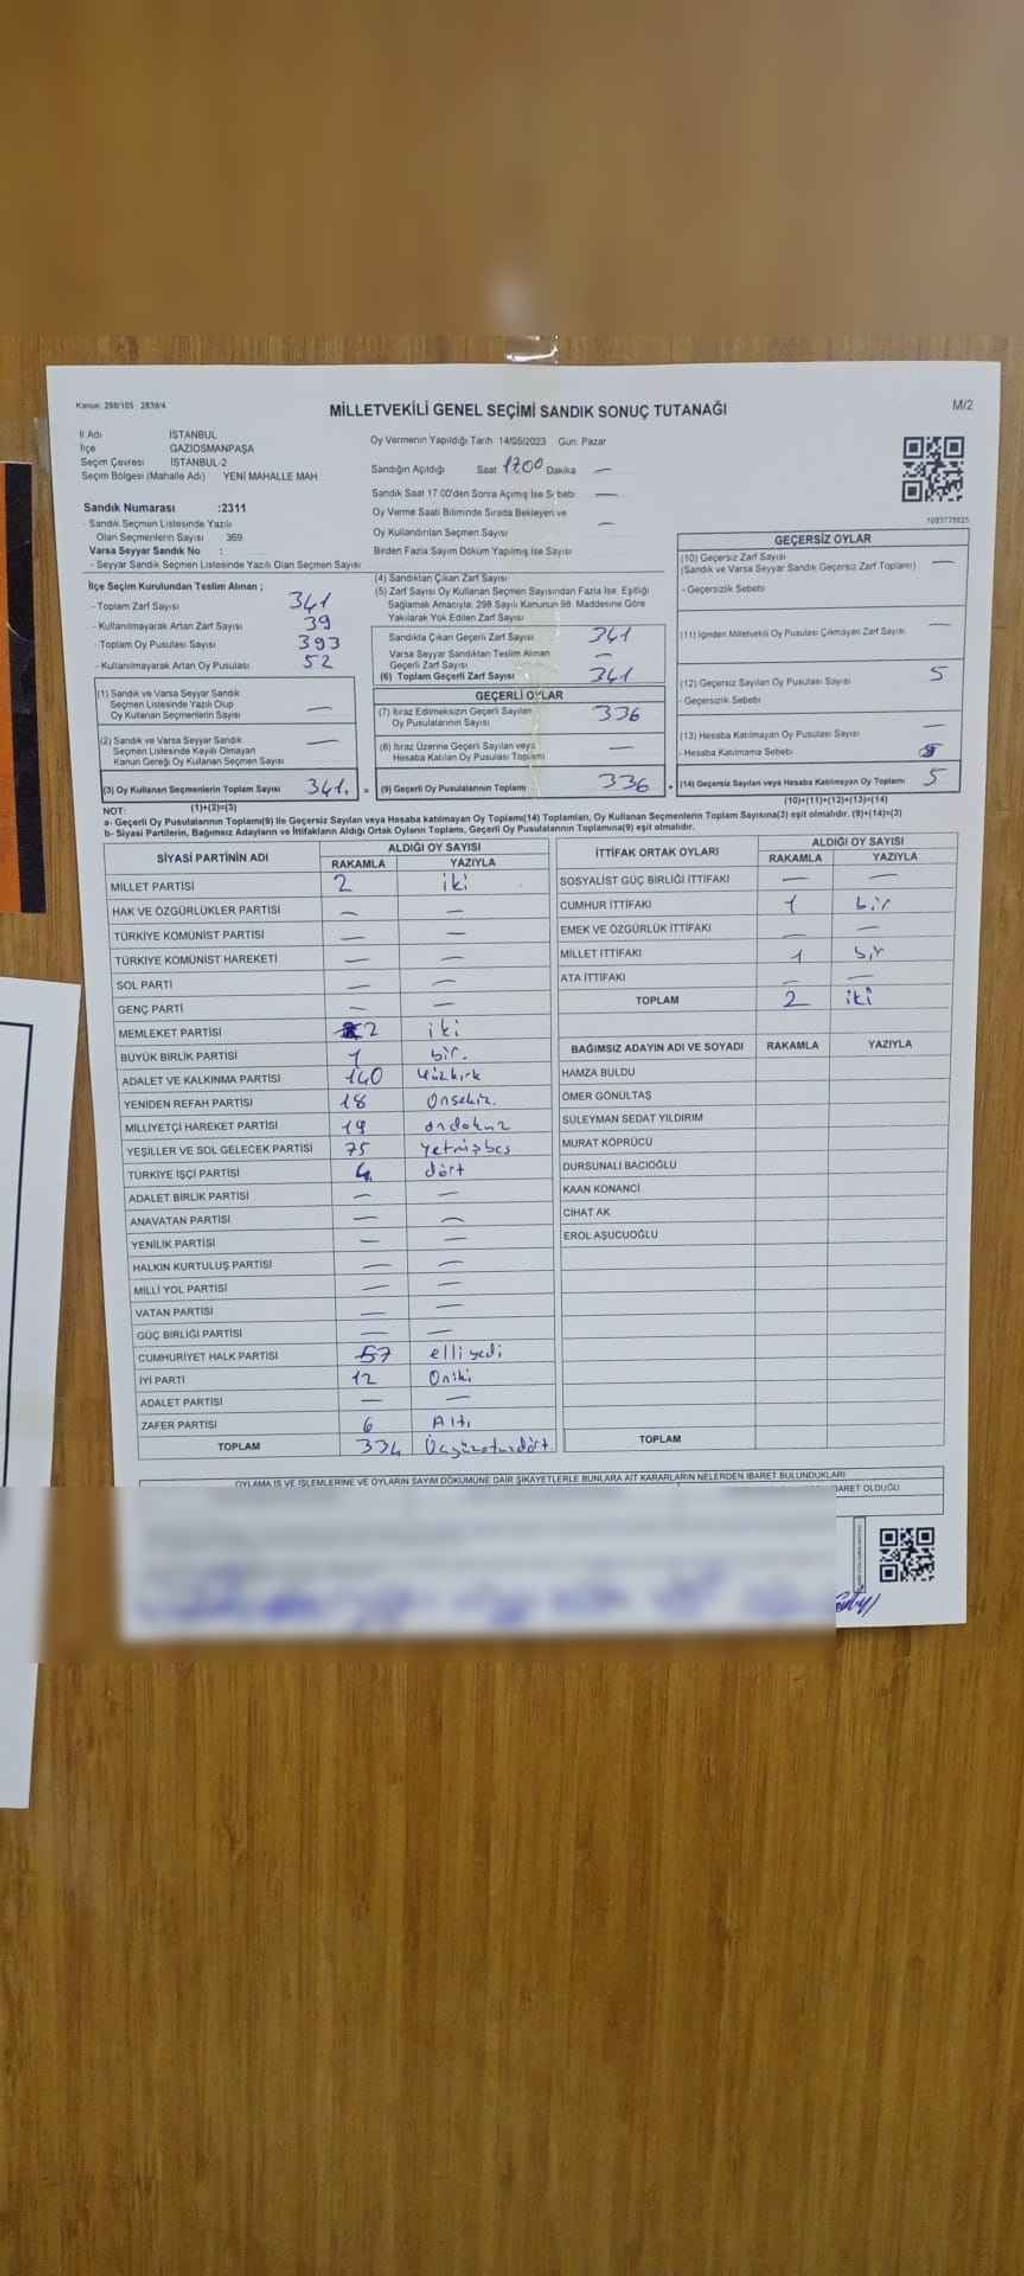 Kanun: 298/105 - 2839/4
MİLLETVEKİLİ GENEL SEÇİMİ SANDIK SONUÇ TUTANAĞI
M/2
İl Adı İSTANBUL
İlçe GAZİOSMANPAŞA
Seçim Çevresi İSTANBUL-2
Seçim Bölgesi (Mahalle Adı) YENİ MAHALLE MAH.
Oy Vermenin Yapıldığı Tarih 14/05/2023 Gün: Pazar
Sandığın Açıldığı Saat 17.00 Dakika —
Sandık Saat 17.00'den Sonra Açılmış İse Sebebi —
Oy Verme Saati Bitiminde Sırada Bekleyen ve
Oy Kullandırılan Seçmen Sayısı —
Birden Fazla Sayım Döküm Yapılmış İse Sayısı
Sandık Numarası :2311
- Sandık Seçmen Listesinde Yazılı
Olan Seçmenlerin Sayısı 369
Varsa Seyyar Sandık No :
- Seyyar Sandık Seçmen Listesinde Yazılı Olan Seçmen Sayısı
İlçe Seçim Kurulundan Teslim Alınan ;
- Toplam Zarf Sayısı 341
- Kullanılmayarak Artan Zarf Sayısı 39
- Toplam Oy Pusulası Sayısı 393
- Kullanılmayarak Artan Oy Pusulası 52
(1) Sandık ve Varsa Seyyar Sandık
Seçmen Listesinde Yazılı Olup
Oy Kullanan Seçmenlerin Sayısı —
(2) Sandık ve Varsa Seyyar Sandık
Seçmen Listesinde Kayılı Olmayan
Kanun Gereği Oy Kullanan Seçmen Sayısı —
(3) Oy Kullanan Seçmenlerin Toplam Sayısı 341.
(1)+(2)=(3)
(4) Sandıktan Çıkan Zarf Sayısı
(5) Zarf Sayısı Oy Kullanan Seçmen Sayısından Fazla İse, Eşitliği
Sağlamak Amacıyla; 298 Sayılı Kanunun 98. Maddesine Göre
Yakılarak Yok Edilen Zarf Sayısı
Sandıkta Çıkan Geçerli Zarf Sayısı 341
Varsa Seyyar Sandıktan Teslim Alınan
Geçerli Zarf Sayısı —
(6) Toplam Geçerli Zarf Sayısı 341
GEÇERLİ OYLAR
(7) İtiraz Edilmeksizin Geçerli Sayılan
Oy Pusulalarının Sayısı 336
(8) İtiraz Üzerine Geçerli Sayılan veya
Hesaba Katılan Oy Pusulası Toplamı —
(9) Geçerli Oy Pusulalarının Toplamı 336
GEÇERSİZ OYLAR
(10) Geçersiz Zarf Sayısı
(Sandık ve Varsa Seyyar Sandık Geçersiz Zarf Toplamı) —
- Geçersizlik Sebebi
(11) İçinden Milletvekili Oy Pusulası Çıkmayan Zarf Sayısı —
(12) Geçersiz Sayılan Oy Pusulası Sayısı 5
- Geçersizlik Sebebi
(13) Hesaba Katılmayan Oy Pusulası Sayısı —
- Hesaba Katılmama Sebebi
(14) Geçersiz Sayılan veya Hesaba Katılmayan Oy Toplamı 5
(10)+(11)+(12)+(13)=(14)
NOT:
a- Geçerli Oy Pusulalarının Toplamı(9) ile Geçersiz Sayılan veya Hesaba katılmayan Oy Toplamı(14) Toplamları, Oy Kullanan Seçmenlerin Toplam Sayısına(3) eşit olmalıdır. (9)+(14)=(3)
b- Siyasi Partilerin, Bağımsız Adayların ve İttifakların Aldığı Ortak Oyların Toplamı, Geçerli Oy Pusulalarının Toplamına(9) eşit olmalıdır.
SİYASİ PARTİNİN ADI ALDIĞI OY SAYISI
RAKAMLA YAZIYLA
MİLLET PARTİSİ 2 iki
HAK VE ÖZGÜRLÜKLER PARTİSİ — —
TÜRKİYE KOMÜNİST PARTİSİ — —
TÜRKİYE KOMÜNİST HAREKETİ — —
SOL PARTİ — —
GENÇ PARTİ — —
MEMLEKET PARTİSİ 2 iki
BÜYÜK BİRLİK PARTİSİ 1 bir.
ADALET VE KALKINMA PARTİSİ 140 Yüzkırk
YENİDEN REFAH PARTİSİ 18 Onsekiz.
MİLLİYETÇİ HAREKET PARTİSİ 19 ondokuz
YEŞİLLER VE SOL GELECEK PARTİSİ 75 Yetmişbeş
TÜRKİYE İŞÇİ PARTİSİ 4 dört
ADALET BİRLİK PARTİSİ — —
ANAVATAN PARTİSİ — —
YENİLİK PARTİSİ — —
HALKIN KURTULUŞ PARTİSİ — —
MİLLİ YOL PARTİSİ — —
VATAN PARTİSİ — —
GÜÇ BİRLİĞİ PARTİSİ — —
CUMHURİYET HALK PARTİSİ 57 elliyedi
İYİ PARTİ 12 Oniki
ADALET PARTİSİ — —
ZAFER PARTİSİ 6 Altı
TOPLAM 334 Üçyüzotuzdört
İTTİFAK ORTAK OYLARI ALDIĞI OY SAYISI
RAKAMLA YAZIYLA
SOSYALİST GÜÇ BİRLİĞİ İTTİFAKI — —
CUMHUR İTTİFAKI 1 bir
EMEK VE ÖZGÜRLÜK İTTİFAKI — —
MİLLET İTTİFAKI 1 bir
ATA İTTİFAKI — —
TOPLAM 2 iki
BAĞIMSIZ ADAYIN ADI VE SOYADI RAKAMLA YAZIYLA
HAMZA BULDU
ÖMER GÖNÜLTAŞ
SÜLEYMAN SEDAT YILDIRIM
MURAT KÖPRÜCÜ
DURSUNALİ BACIOĞLU
KAAN KONANCİ
CİHAT AK
EROL AŞUCUOĞLU
TOPLAM
OYLAMA İŞ VE İŞLEMLERİNE VE OYLARIN SAYIM DÖKÜMÜNE DAİR ŞİKAYETLERLE BUNLARA AİT KARARLARIN NELERDEN İBARET BULUNDUKLARI
BARET OLDUĞU